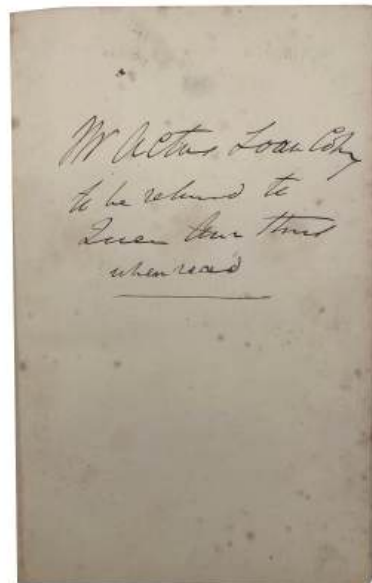 Mr Acton Loan Copy
to be returned to
Queen Anne Street
when read